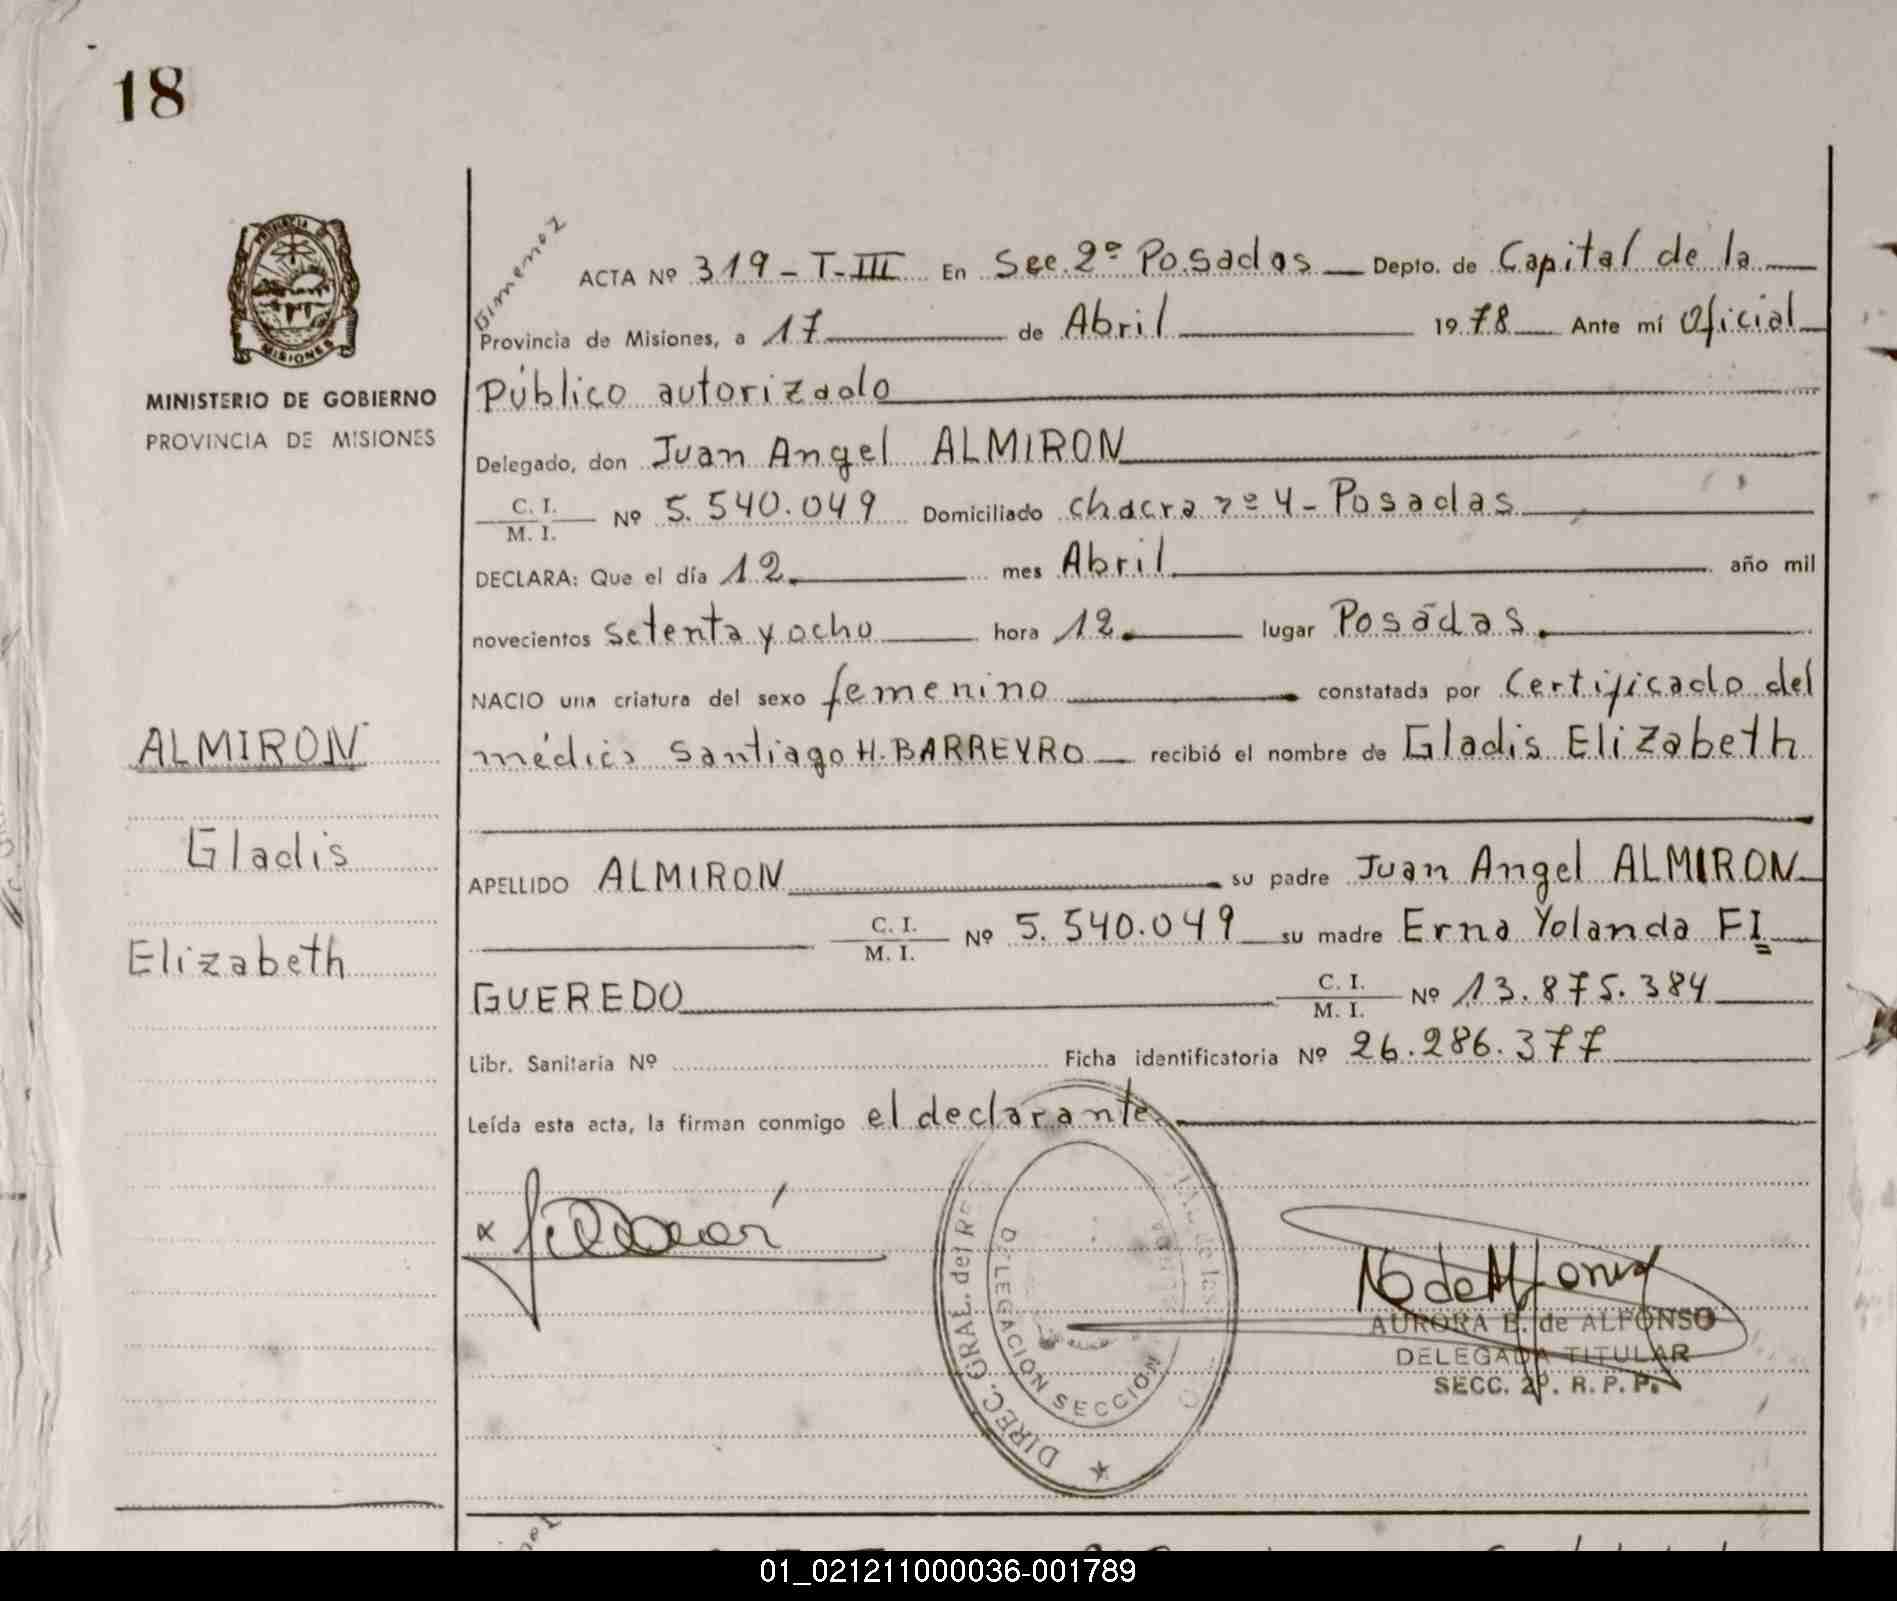 18
Gimenez
PROVINCIA
MISIONES
MINISTERIO DE GOBIERNO
PROVINCIA DE MISIONES
ALMIRON
Gladis
Elizabeth
ACTA Nº 319-T-III En Sec. 2º Posadas Depto. de Capital de la
Provincia de Misiones, a 17 de Abril 1978 Ante mí Oficial
Público autorizado
Delegado, don Juan Angel ALMIRON
C. I.
M. I. Nº 5.540.049 Domiciliado chacra nº 4 - Posadas
DECLARA: Que el día 12 mes Abril año mil
novecientos setenta y ocho hora 12 lugar Posadas
NACIO una criatura del sexo femenino constatada por Certificado del
médico Santiago H. BARREYRO recibió el nombre de Gladis Elizabeth
APELLIDO ALMIRON su padre Juan Angel ALMIRON
C. I.
M. I. Nº 5.540.049 su madre Erna Yolanda FI
GUEREDO C. I.
M. I. Nº 13.875.384
Libr. Sanitaria Nº Ficha identificatoria Nº 26.286.377
Leída esta acta, la firman conmigo el declarante
DIREC. GRAL. del
DELEGACION SECCION
AURORA B. de ALFONSO
DELEGADA TITULAR
SECC. 2º. R. P. P.
01_021211000036-001789